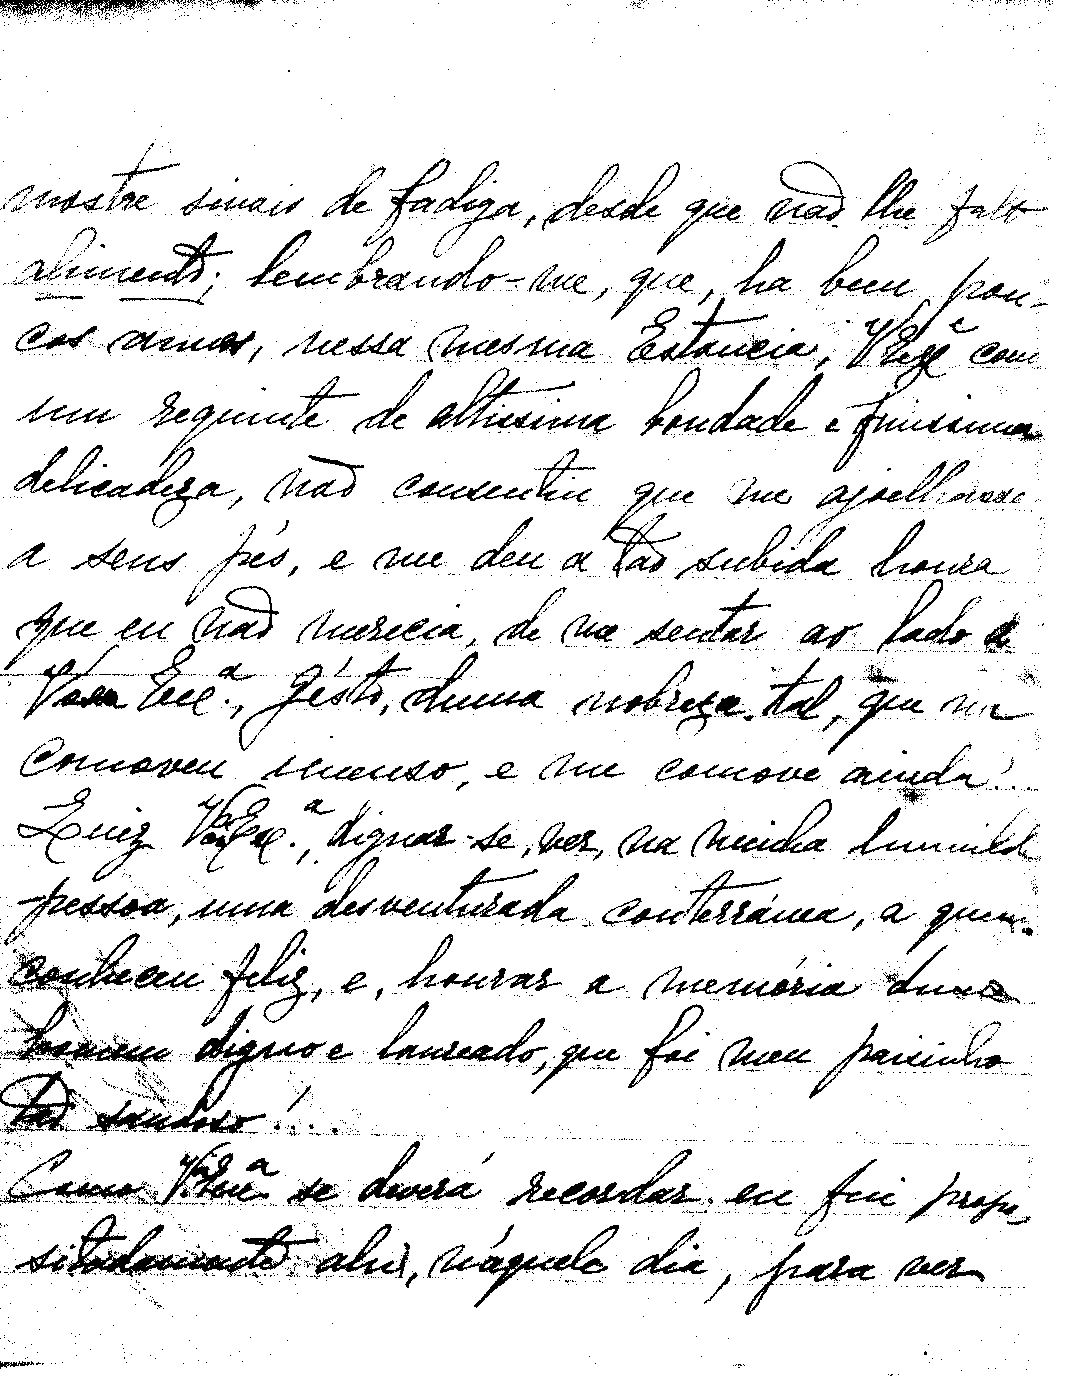 mostre sinais de fadiga, desde que não lhe falte
alimento; lembrando-me, que, ha bem pou-
cos anos, nessa mesma Estancia, V. Exª com
um requinte de altissima bondade e finissima
delicadeza, não consentiu que me ajoelhasse
a seus pés, e me deu a tão subida honra
que eu não merecia, de me sentar ao lado de
Vossa Excª., Gésto, duma nobreza tal, que me
comoveu imenso, e me comove ainda!...
Quiz V. Exª., dignar-se, ver, na minha humilde
pessoa, uma desventurada conterránea, a quem
conheceu feliz, e, honrar a memória dum
homem digno e laureado, que foi meu paisinho
tão saudoso!...
Como V. Excª se deverá recordar, eu fui propo-
sitadamente ahi, náquele dia, para ver